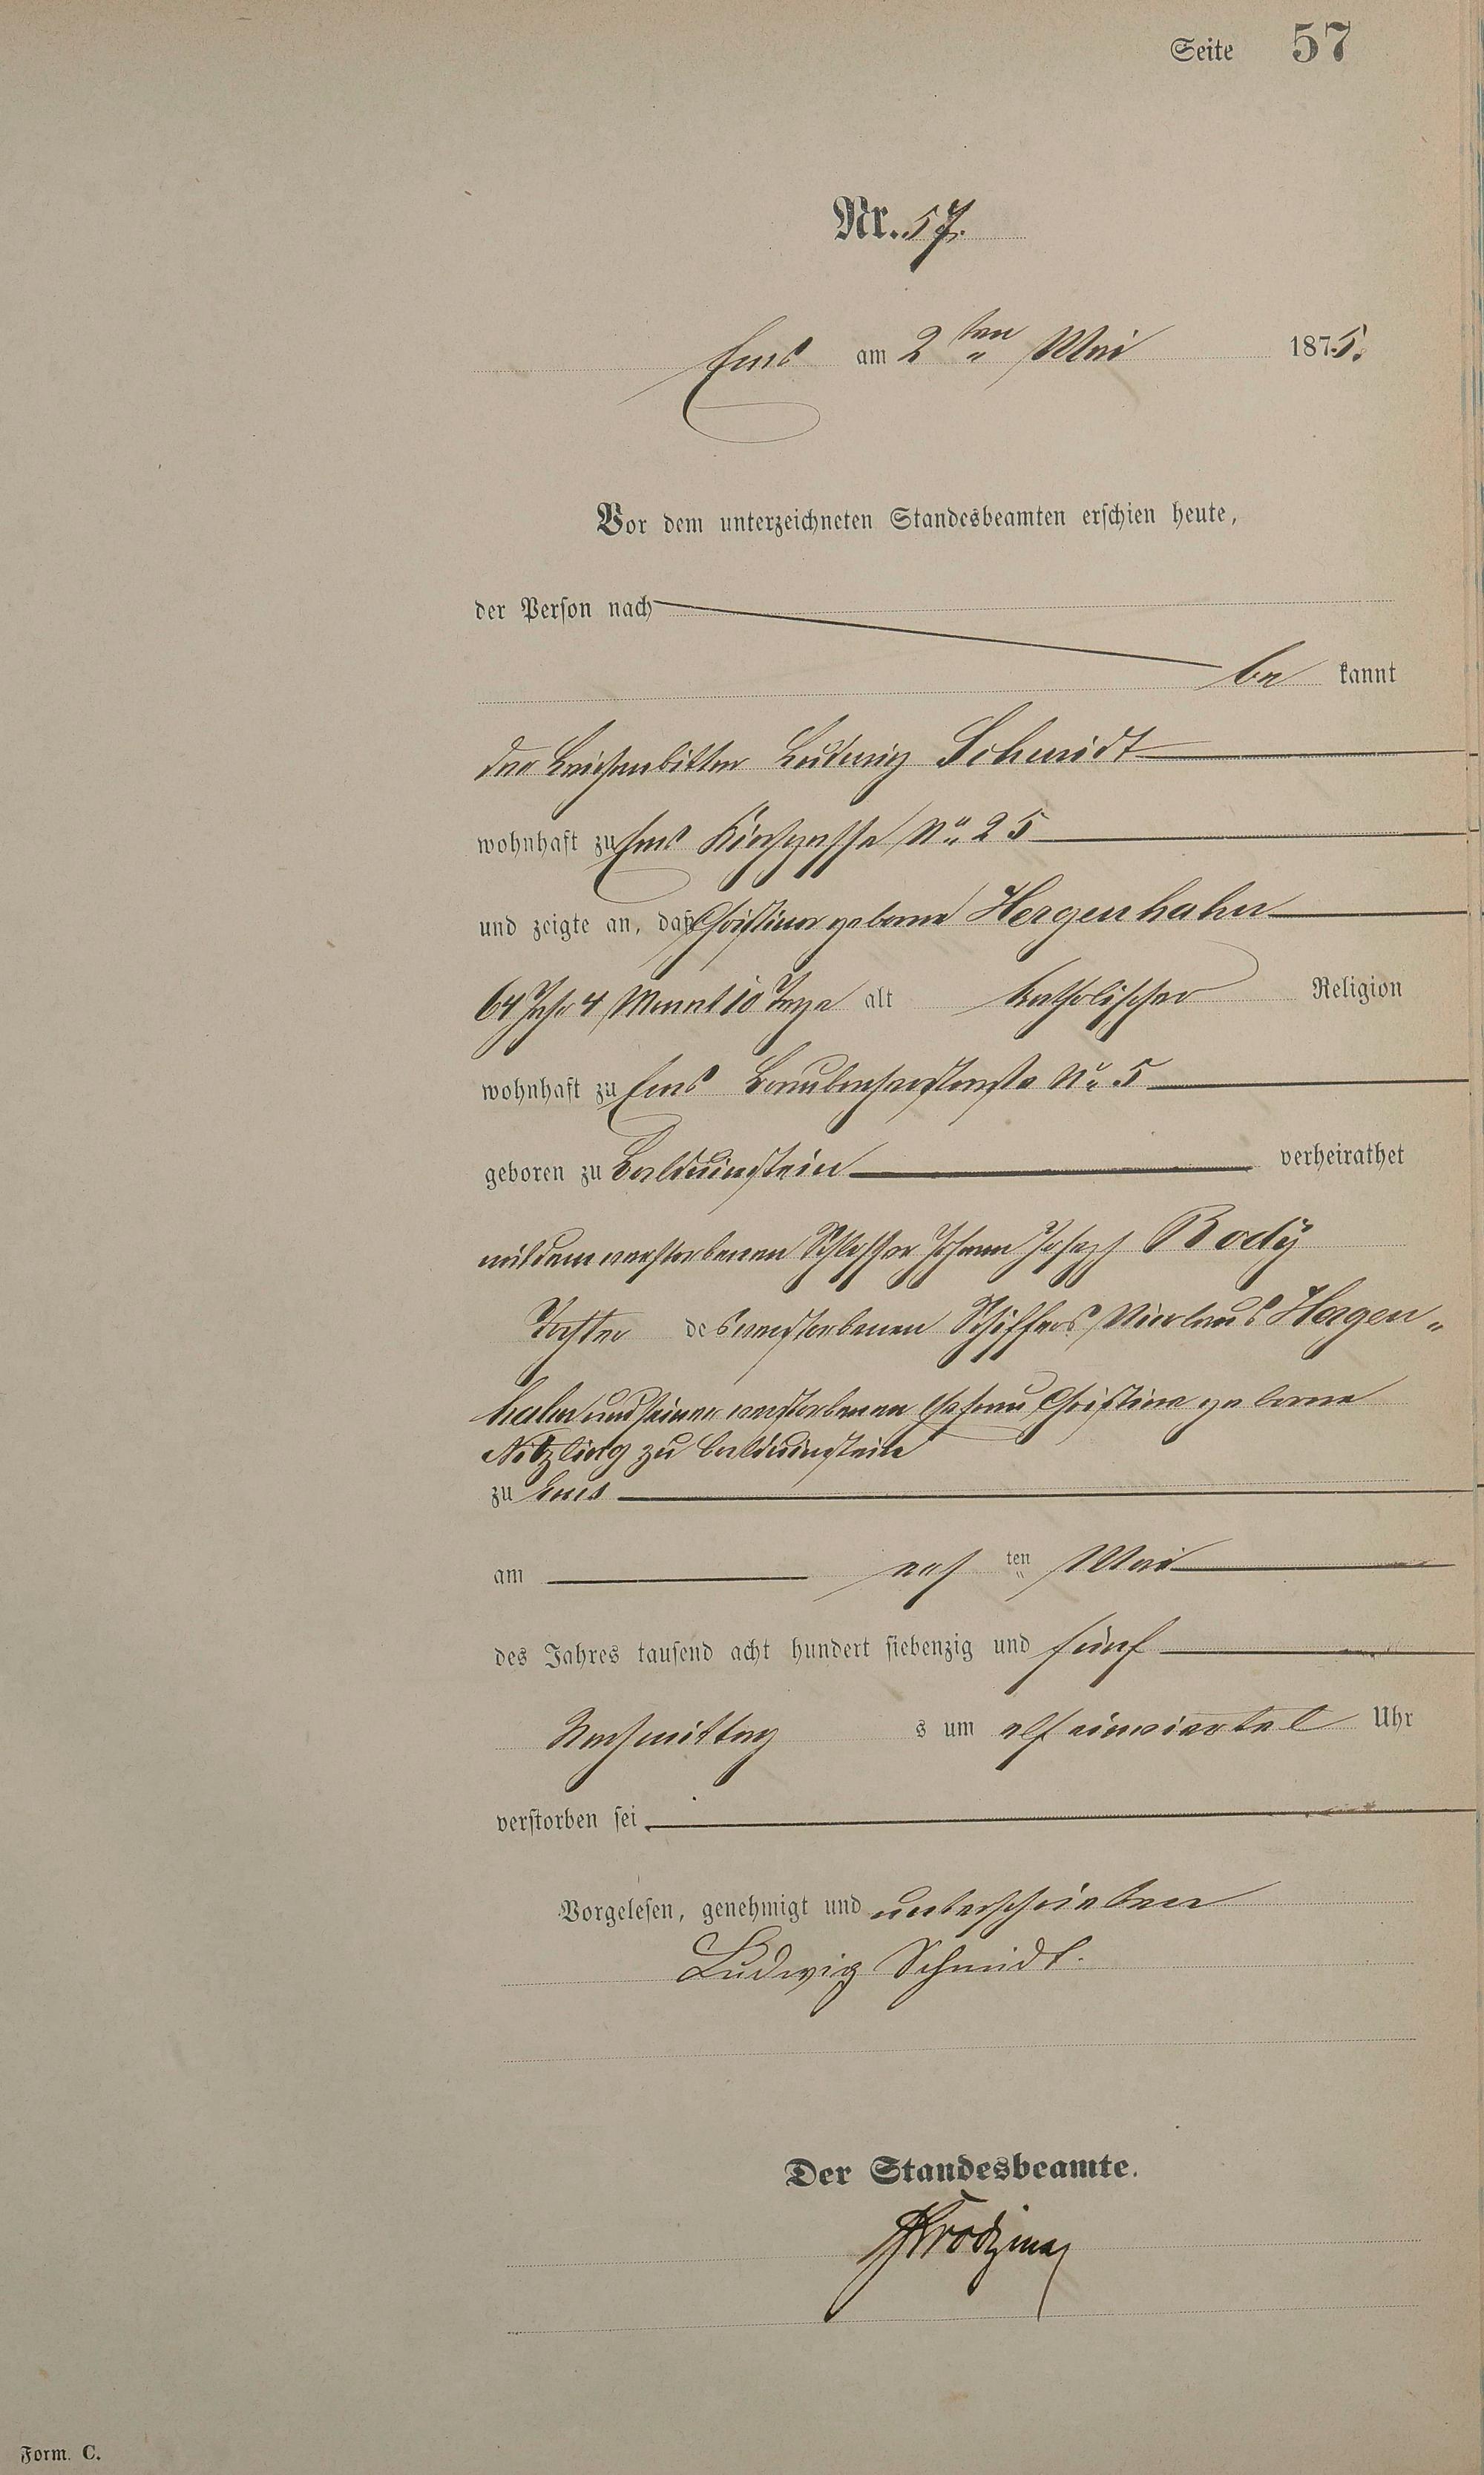 Seite 57
Nr. 57.
Ems am 2ten Mai 1875.
Vor dem unterzeichneten Standesbeamten erschien heute,
der Person nach
be kannt
der Leichenbitter Ludwig Schmidt
wohnhaft zu Ems Kirchgasse No. 25
und zeigte an, daß Christina geborne Hergenhahn
64 Jahr 4 Monat 10 Tage alt katholischer Religion
wohnhaft zu Ems No. 5
geboren zu Balduinstein verheirathet
mit dem verstorbenen Schlosser Johann Joseph Body
Tochter des verstorbenen Schiffers Nicolaus Hergen-
hahn und seiner verstorbenen Ehefrau Christine geborne
Nitzling zu Balduinstein
zu Ems
am ten Mai
des Jahres tausend acht hundert siebenzig und fünf
Nachmittag s um elf einviertel Uhr
verstorben sei.
Vorgelesen, genehmigt und unterschrieben
Ludwig Schmidt.
Der Standesbeamte.
Form. C.